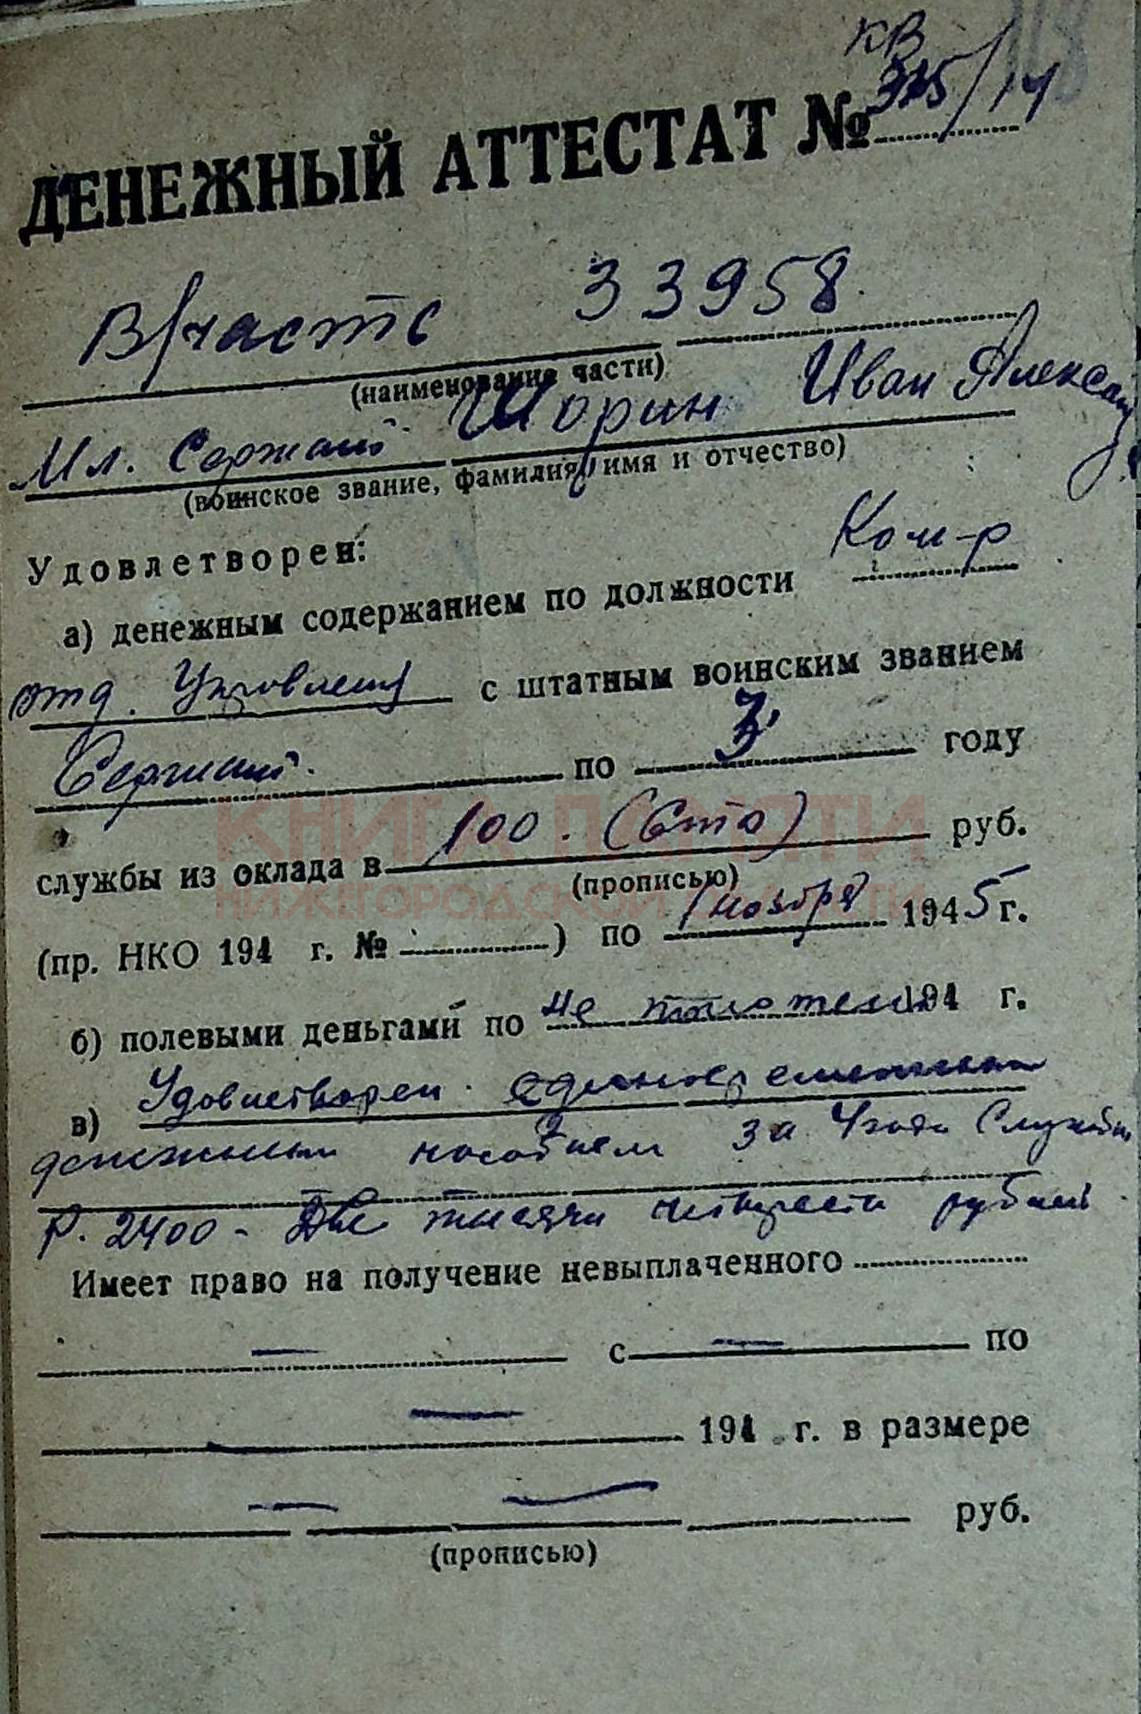 КВ
ДЕНЕЖНЫЙ АТТЕСТАТ № 325/14
В/часть 33958
(наименование части)
Мл. Сержант Шорин Иван Александ
(воинское звание, фамилия, имя и отчество)
Удовлетворен:
а) денежным содержанием по должности Ком-р
отд. Управления с штатным воинским званием
Сержант по 3 году
службы из оклада в 100. (Сто) руб.
(прописью)
(пр. НКО 194 г. № ) по 1 ноября 1945 г.
б) полевыми деньгами по не 194 г.
в) Удовлетворен единовременным
денежным пособием за 4 года Службы
Р. 2400 - Две тысячи четыреста рублей
Имеет право на получение невыплаченного
— с — по
— 194 г. в размере
— — руб.
(прописью)
КНИГА ПАМЯТИ
НИЖЕГОРОДСКОЙ ОБЛАСТИ